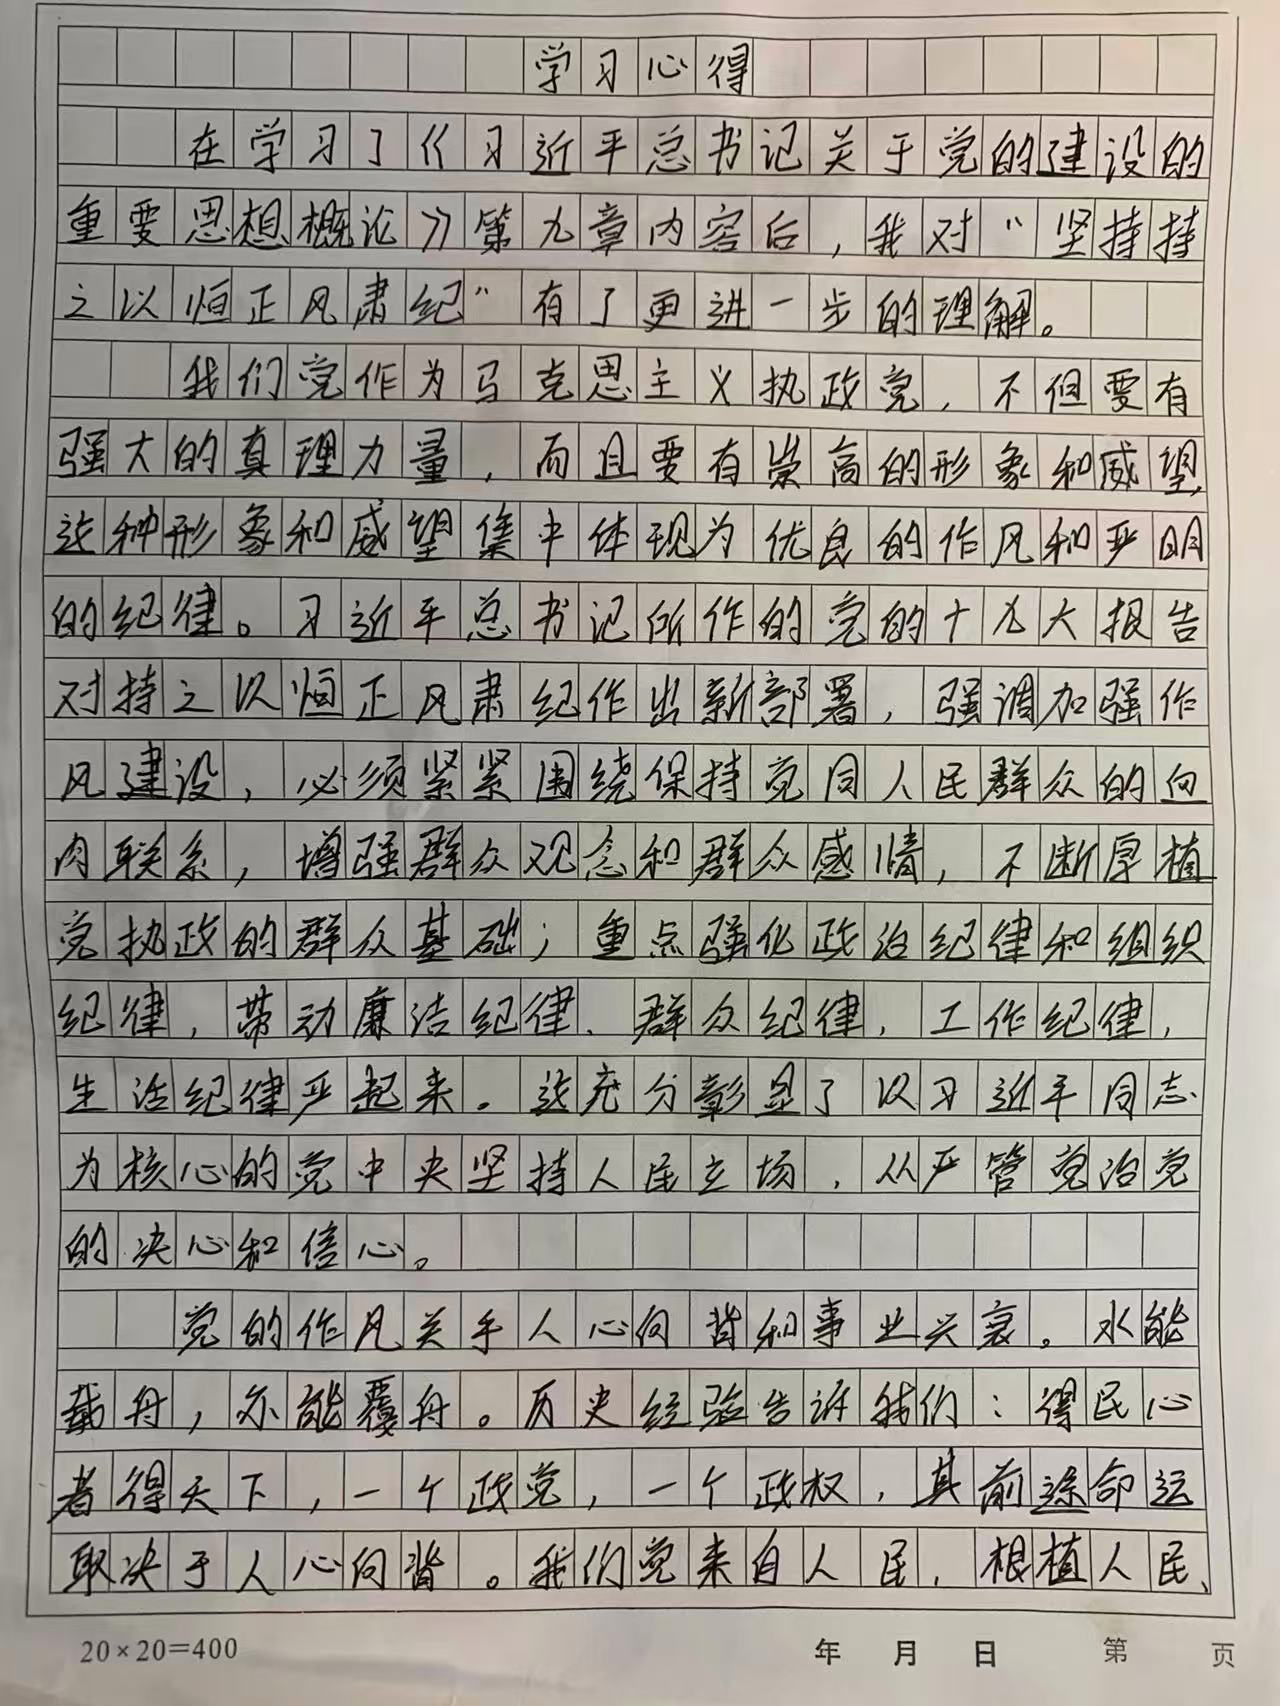 学习心得
在学习了《习近平总书记关于党的建设的
重要思想概论》第九章内容后,我对“坚持持
之以恒正风肃纪”有了更进一步的理解。
我们党作为马克思主义执政党,不但要有
强大的真理力量,而且要有崇高的形象和威望,
这种形象和威望集中体现为优良的作风和严明
的纪律。习近平总书记所作的党的十九大报告
对持之以恒正风肃纪作出新部署,强调加强作
风建设,必须紧紧围绕保持党同人民群众的血
肉联系,增强群众观念和群众感情,不断厚植
党执政的群众基础;重点强化政治纪律和组织
纪律,带动廉洁纪律、群众纪律,工作纪律,
生活纪律严起来。这充分彰显了以习近平同志
为核心的党中央坚持人民立场,从严管党治党
的决心和信心。
党的作风关乎人心向背和事业兴衰。水能
载舟,亦能覆舟。历史经验告诉我们:得民心
者得天下,一个政党,一个政权,其前途命运
取决于人心向背。我们党来自人民,根植人民、
20×20=400 年 月 日 第 页